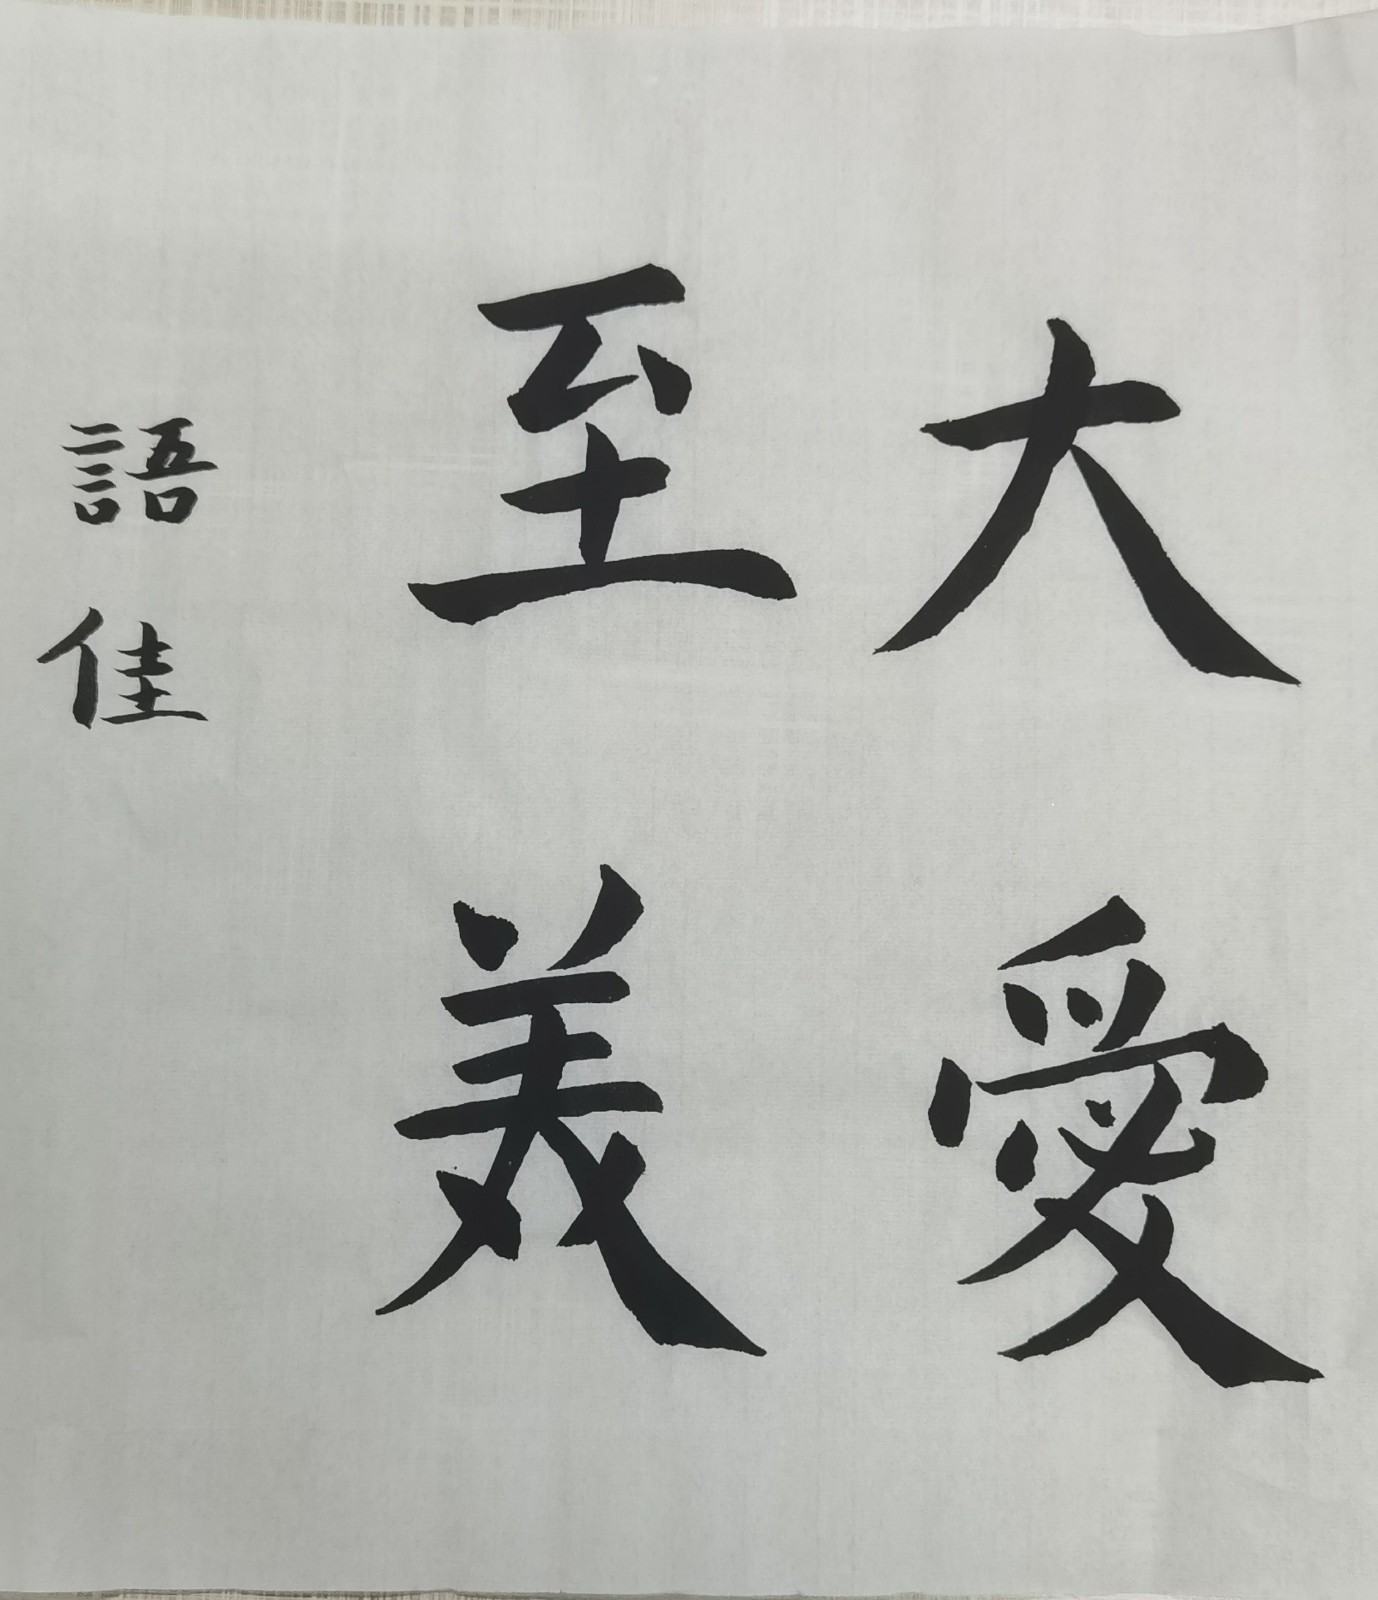 大愛
至美
語佳